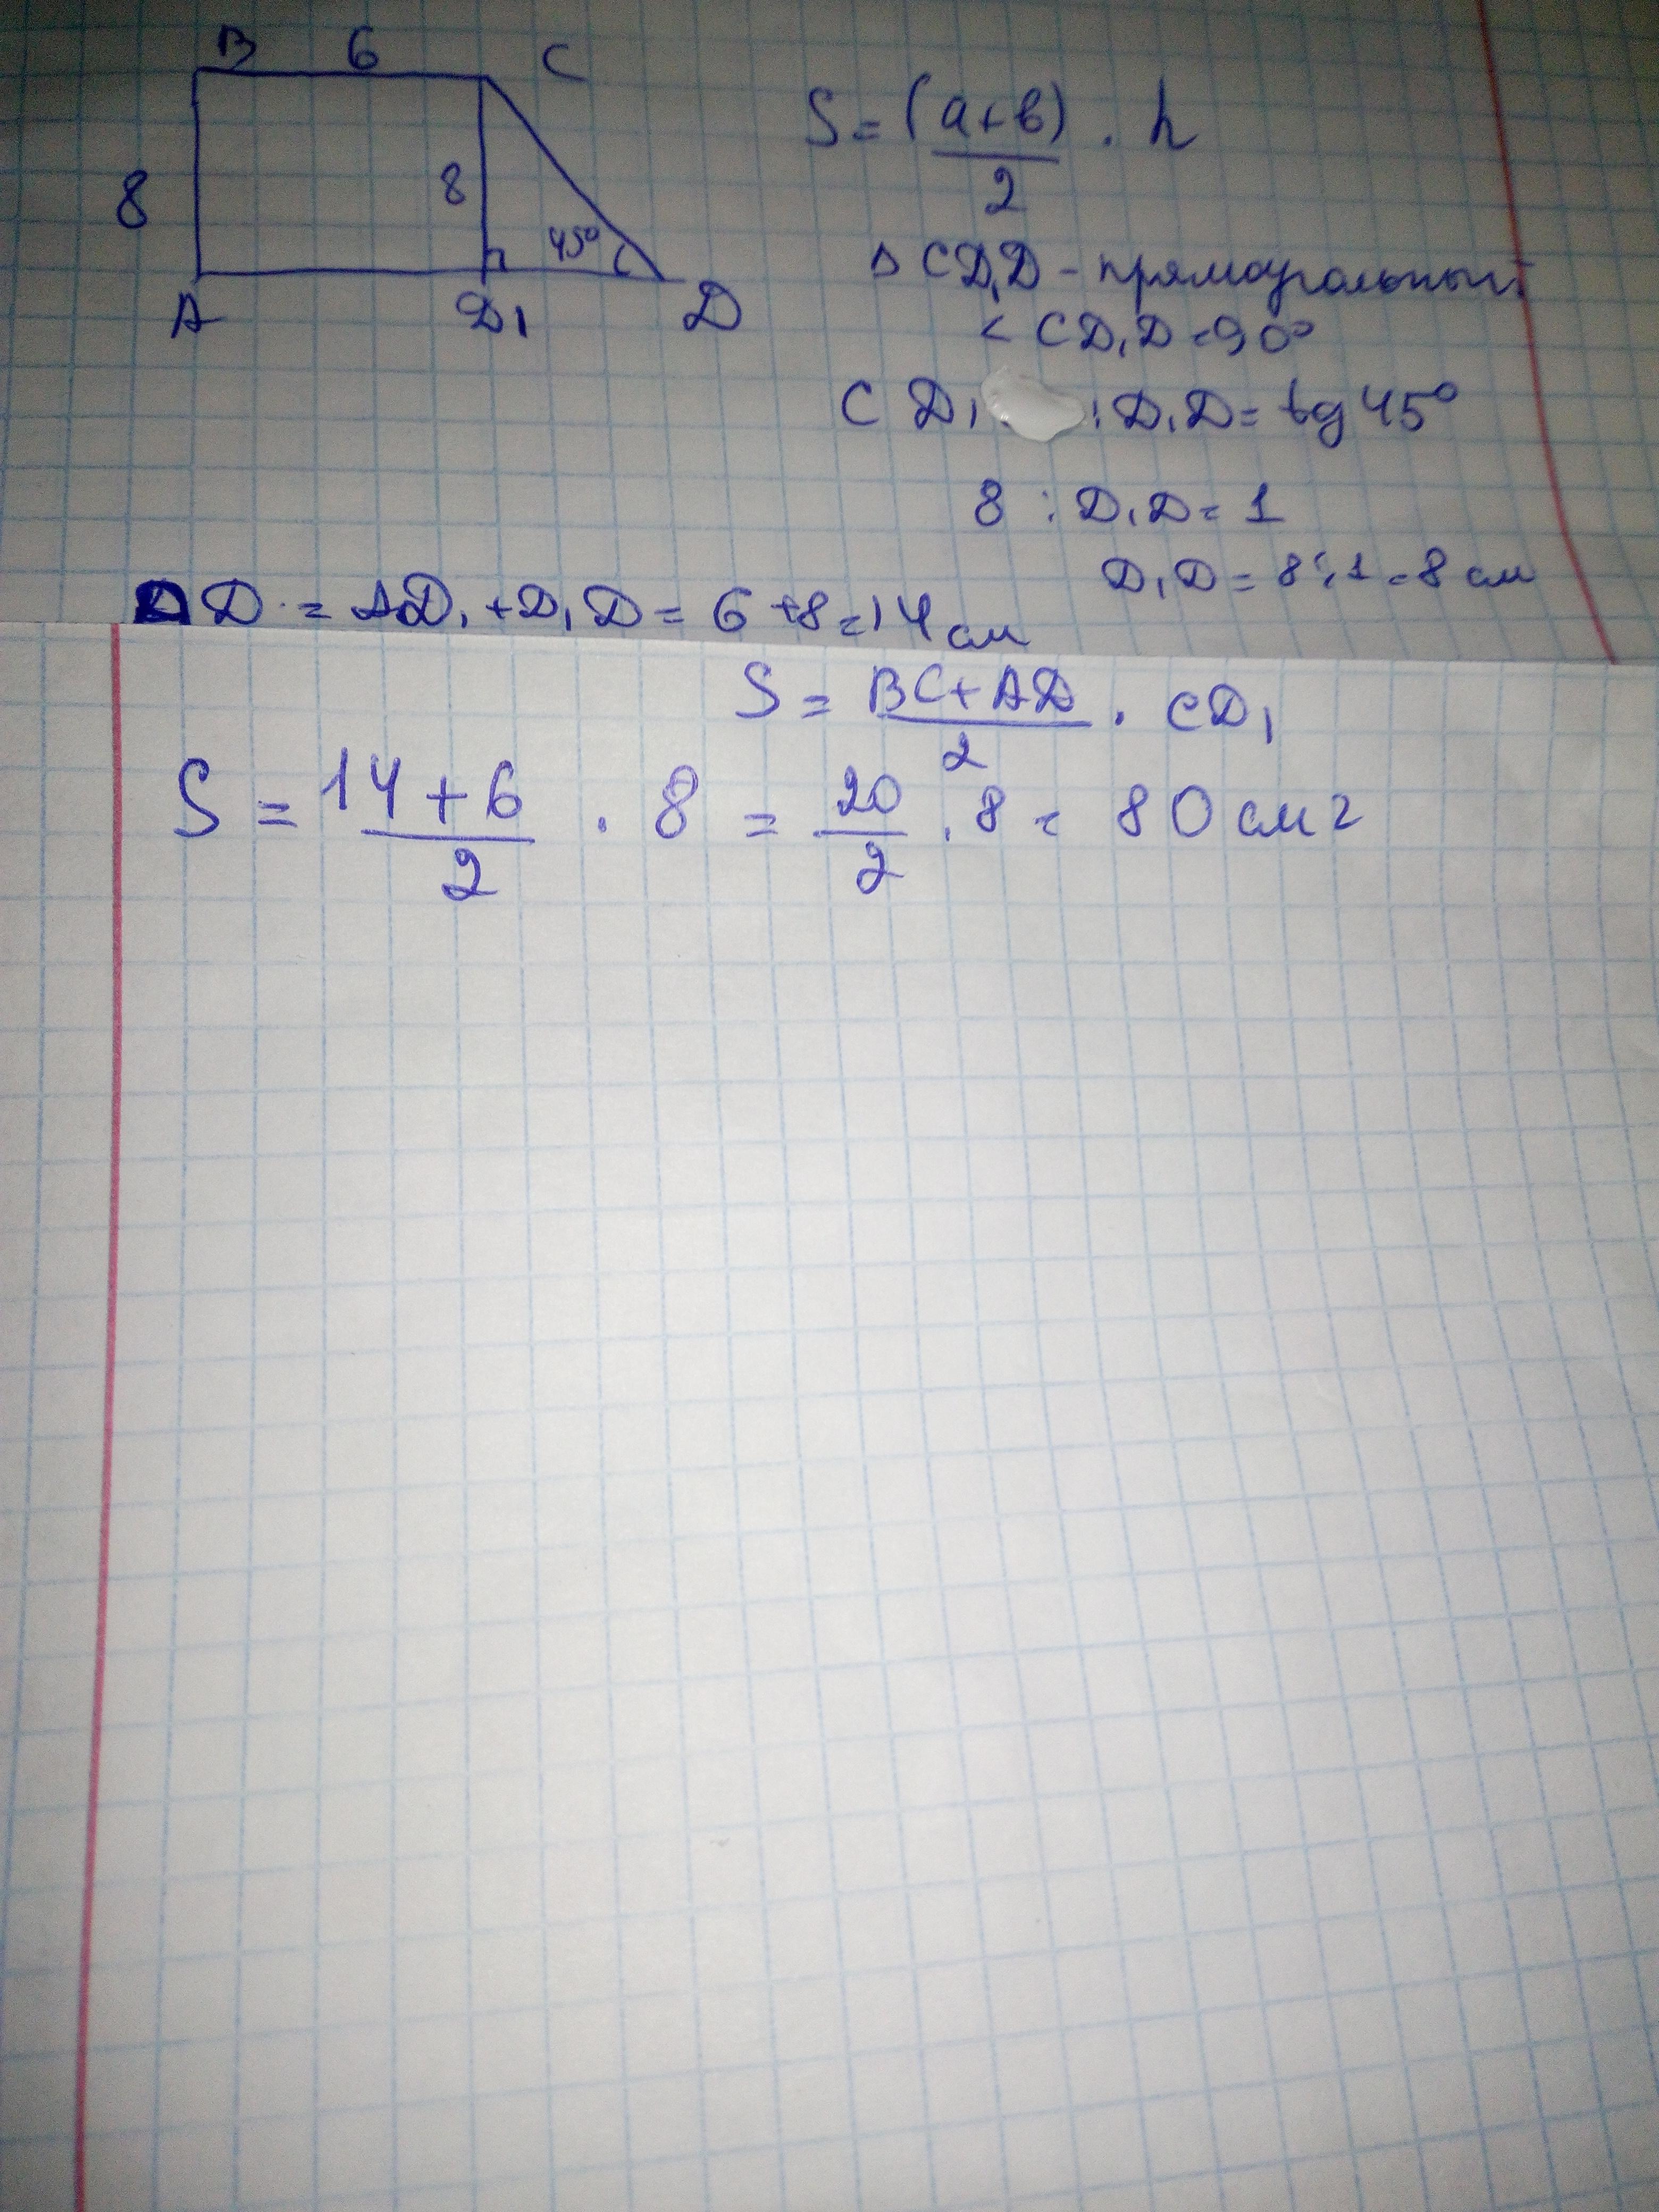 B 6 C
8 8 45°
A D₁ D
S = (a+b)/2 · h
Δ CD₁D - прямоугольный
< CD₁D = 90°
CD₁ : D₁D = tg 45°
8 : D₁D = 1
D₁D = 8 : 1 = 8 см
AD = AD₁ + D₁D = 6 + 8 = 14 см
S = BC + AD/2 · CD₁
S = 14 + 6/2 · 8 = 20/2 · 8 = 80 см²